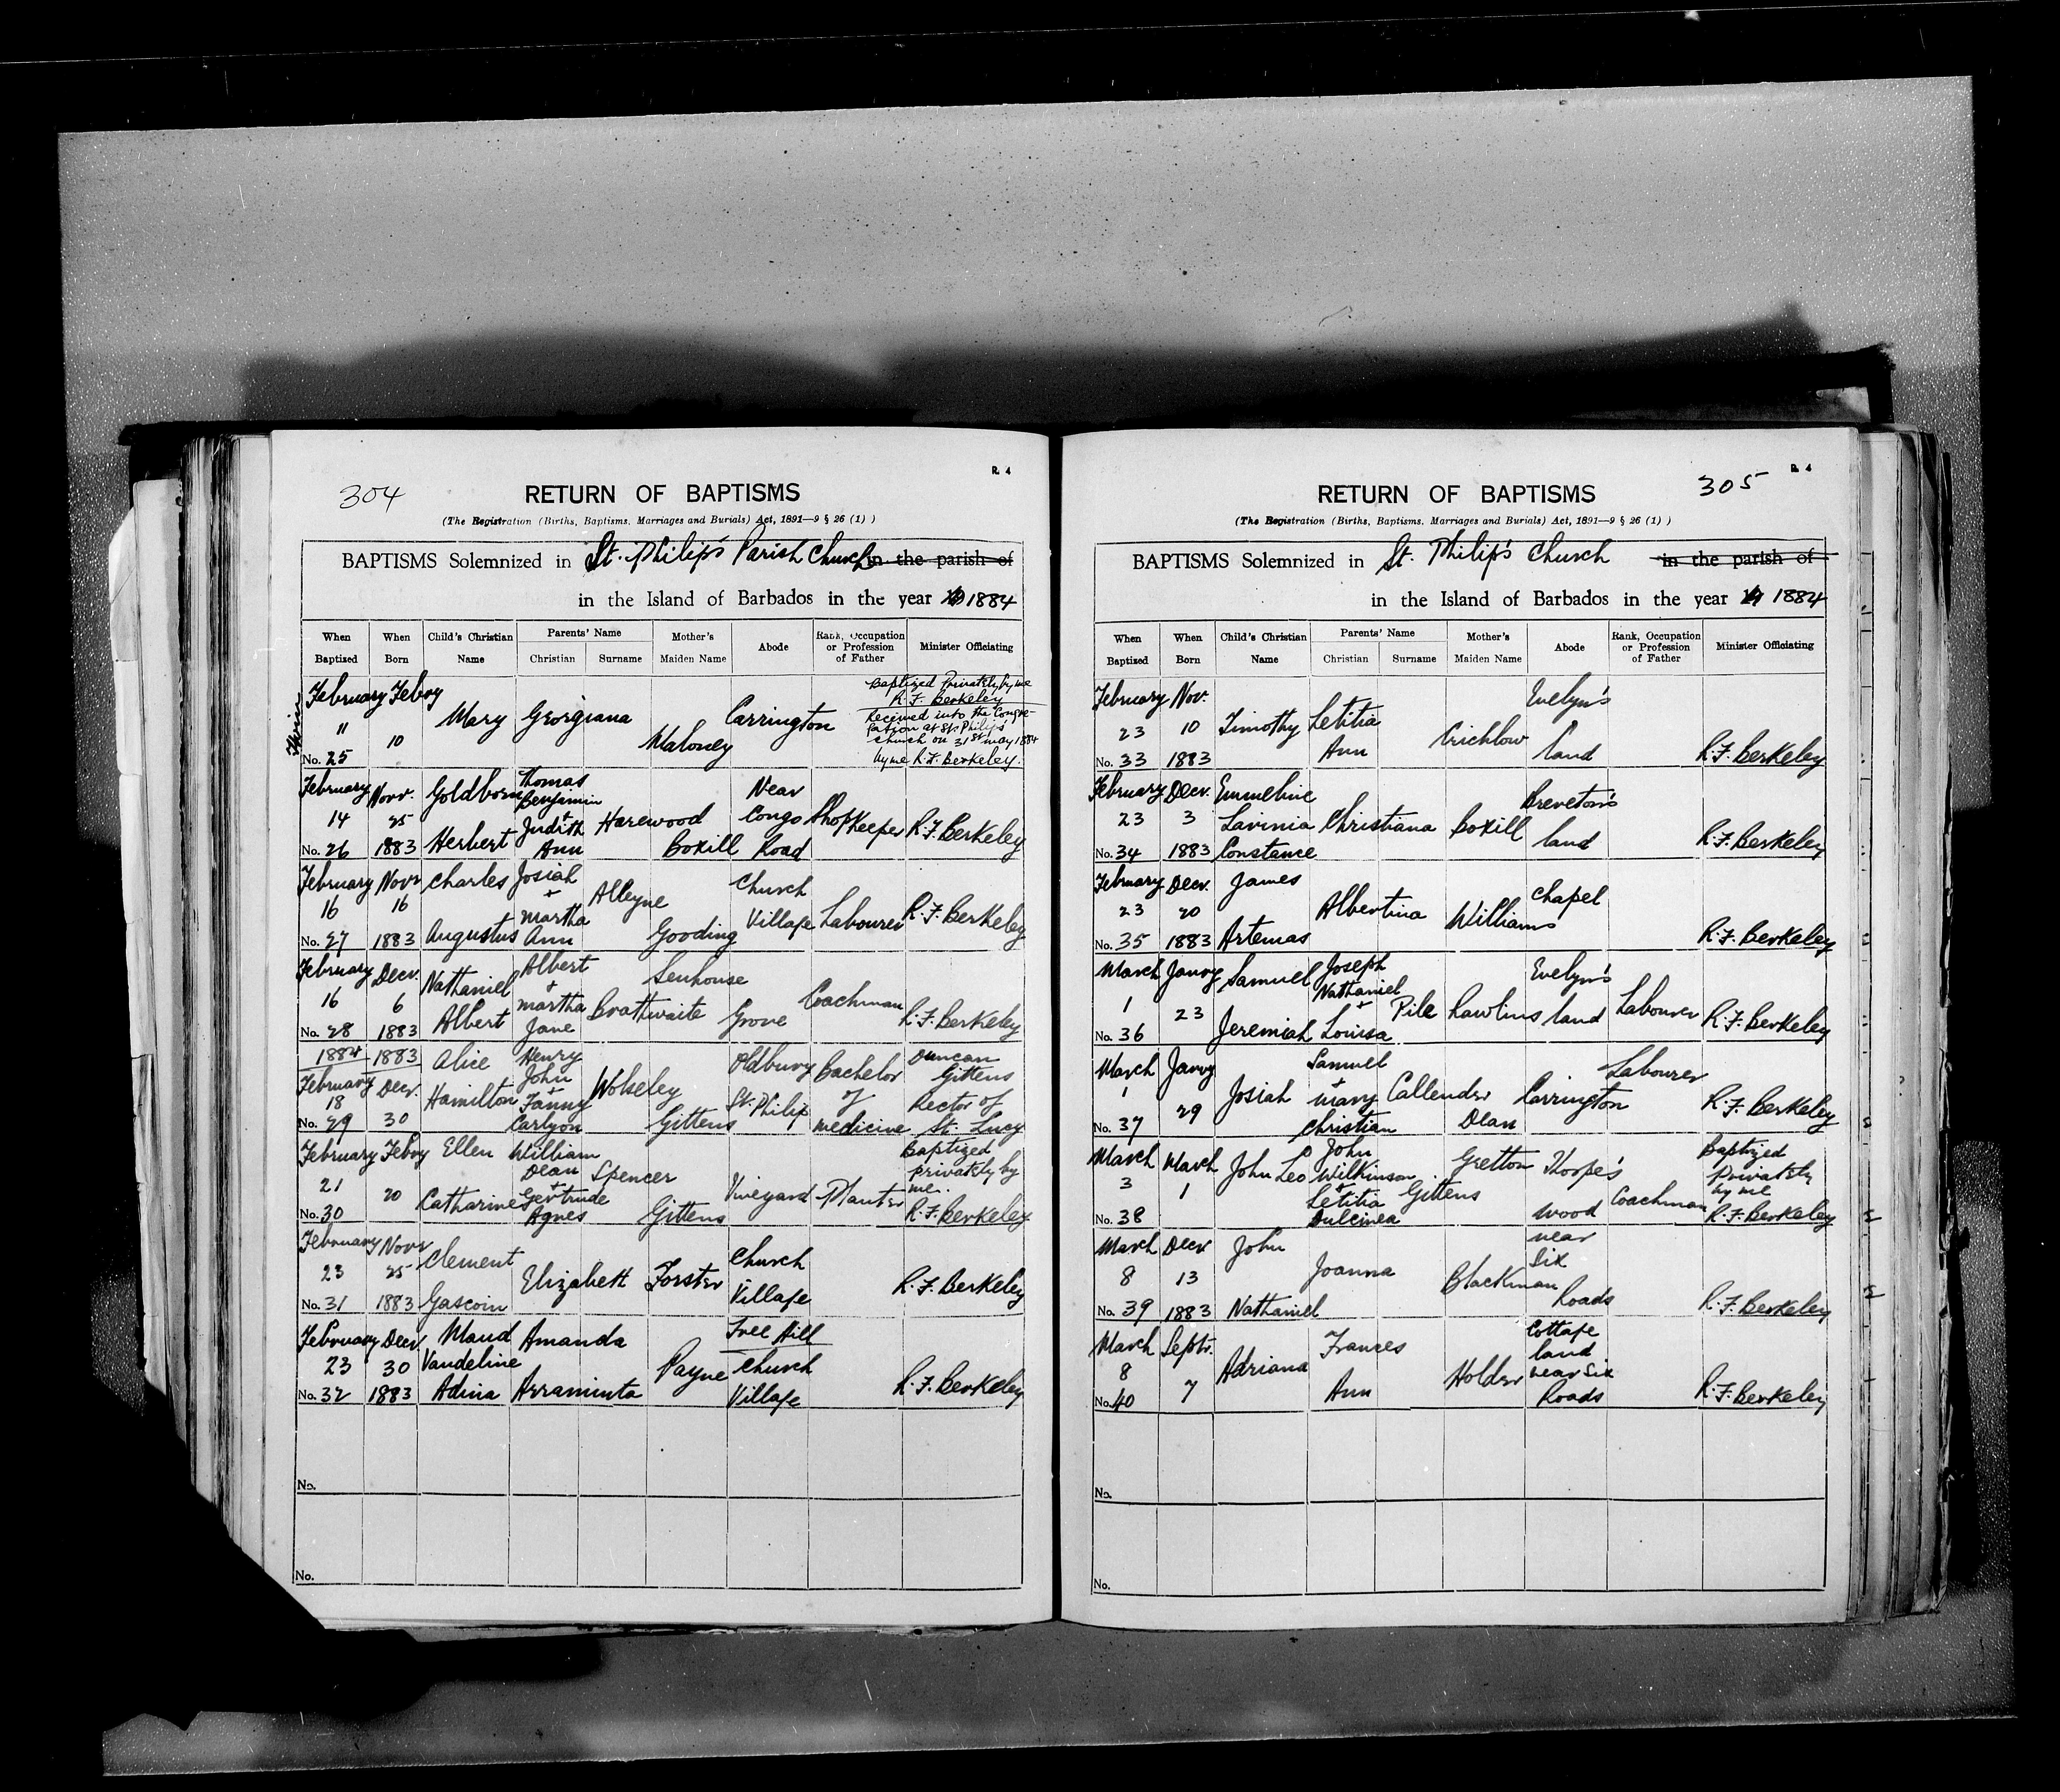 304
R. 4
RETURN OF BAPTISMS
(The Registration (Births, Baptisms, Marriages and Burials) Act, 1891—9 § 26 (1) )
BAPTISMS Solemnized in St. Philip's Parish Church in the parish of
in the Island of Barbados in the year 1884
When Baptized | When Born | Child's Christian Name | Parents' Name Christian | Surname | Mother's Maiden Name | Abode | Rank, Occupation or Profession of Father | Minister Officiating
No. 25 February 11 | Febry 10 | Mary | Georgiana | | Maloney | Carrington | | Baptized Privately by me R. F. Berkeley Received into the Congregation at St. Philip's Church on 31st May 1884 by me R. F. Berkeley.
No. 26 February 14 | Novr. 25 1883 | Goldborn Herbert | Thomas Benjamin + Judith Ann | Harewood | Boxill | Near Congo Road | Shopkeeper | R. F. Berkeley
No. 27 February 16 | Novr 16 1883 | Charles Augustus | Josiah + Martha Ann | Alleyne | Gooding | Church Village | Labourer | R. F. Berkeley
No. 28 February 16 | Decr. 6 1883 | Nathaniel Albert | Albert + Martha Jane | Brathwaite | Senhouse | Grove | Coachman | R. F. Berkeley
No. 29 1884 February 18 | 1883 Decr. 30 | Alice Hamilton | Henry John + Fanny Carlyon | Wolseley | Gittens | Oldbury St. Philip | Bachelor of medicine | Duncan Gittens Rector of St. Lucy
No. 30 February 21 | Febry 20 | Ellen Catharine | William Dean + Gertrude Agnes | Spencer | Gittens | Vineyard | Planter | Baptized privately by me. R. F. Berkeley
No. 31 February 23 | Novr 25 1883 | Clement Gascoin | Elizabeth | | Forster | Church Village | | R. F. Berkeley
No. 32 February 23 | Decr. 30 1883 | Maud Vandeline Adina | Amanda Arraminta | | Payne | Free Hill Church Village | | R. F. Berkeley
No.
No.
R. 4
305
RETURN OF BAPTISMS
(The Registration (Births, Baptisms, Marriages and Burials) Act, 1891—9 § 26 (1) )
BAPTISMS Solemnized in St. Philip's Church in the parish of
in the Island of Barbados in the year 1884
When Baptized | When Born | Child's Christian Name | Parents' Name Christian | Surname | Mother's Maiden Name | Abode | Rank, Occupation or Profession of Father | Minister Officiating
No. 33 February 23 | Nov. 10 1883 | Timothy | Letitia Ann | | Crichlow | Evelyn's land | | R. F. Berkeley
No. 34 February 23 | Decr. 3 1883 | Emmeline Lavinia Constance | Christiana | | Boxill | Brereton's land | | R. F. Berkeley
No. 35 February 23 | Decr. 20 1883 | James Artemas | Albertina | | Williams | Chapel | | R. F. Berkeley
No. 36 March 1 | Janry 23 | Samuel Jeremiah | Joseph Nathaniel + Louisa | Pile | Rawlins | Evelyn's land | Labourer | R. F. Berkeley
No. 37 March 1 | Janry 29 | Josiah | Samuel + Mary Christian | Callender | Dean | Carrington | Labourer | R. F. Berkeley
No. 38 March 3 | March 1 | John Leo | John Wilkinson + Letitia Dulcinea | Gittens | Gretton | Thorpe's wood | Coachman | Baptized Privately by me R. F. Berkeley
No. 39 March 8 | Decr 13 1883 | John Nathaniel | Joanna | | Blackman | near Six Roads | | R. F. Berkeley
No. 40 March 8 | Septr. 7 | Adriana | Frances Ann | | Holder | Cottage land near Six Roads | | R. F. Berkeley
No.
No.